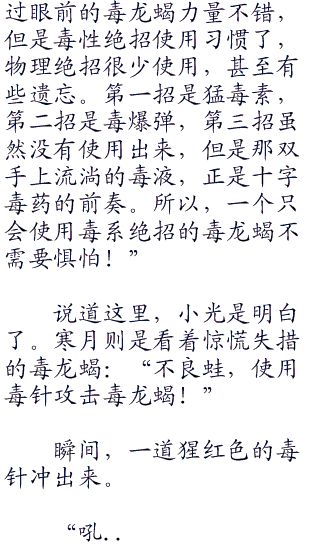 过眼前的毒龙蝎力量不错，
但是毒性绝招使用习惯了，
物理绝招很少使用，甚至有
些遗忘。第一招是猛毒素，
第二招是毒爆弹，第三招虽
然没有使用出来，但是那双
手上流淌的毒液，正是十字
毒药的前奏。所以，一个只
会使用毒系绝招的毒龙蝎不
需要惧怕！”
说道这里，小光是明白
了。寒月则是看着惊慌失措
的毒龙蝎：“不良蛙，使用
毒针攻击毒龙蝎！”
瞬间，一道猩红色的毒
针冲出来。
“吼..